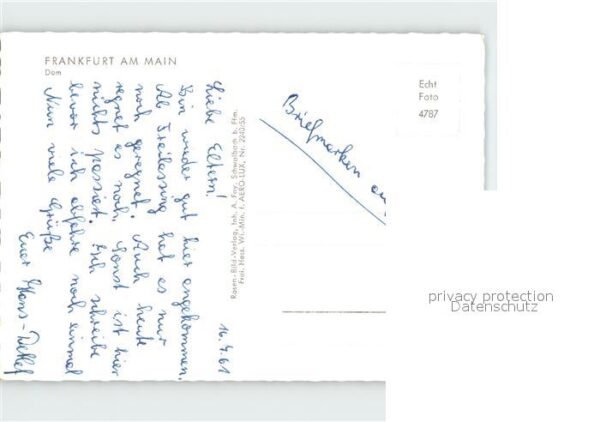 FRANKFURT AM MAIN
Dom
Echt
Foto
4787
16. 4. 61
Liebe Eltern!
Bin wieder gut hier angekommen.
Ab Freilassing hat es nur
noch geregnet. Auch heute
regnet es noch. Sonst ist hier
nichts passiert. Ich schreibe
bevor ich abfahre noch einmal
Nun viele Grüße
Euer Hans-Detlef
Rosen-Bild-Verlag, Inh. A. Fay, Schwalbach b. Ffm.
Frei. Hess. Wi.-Min. f. AERO-LUX, Nr. 2240/55
Briefmarken
privacy protection
Datenschutz